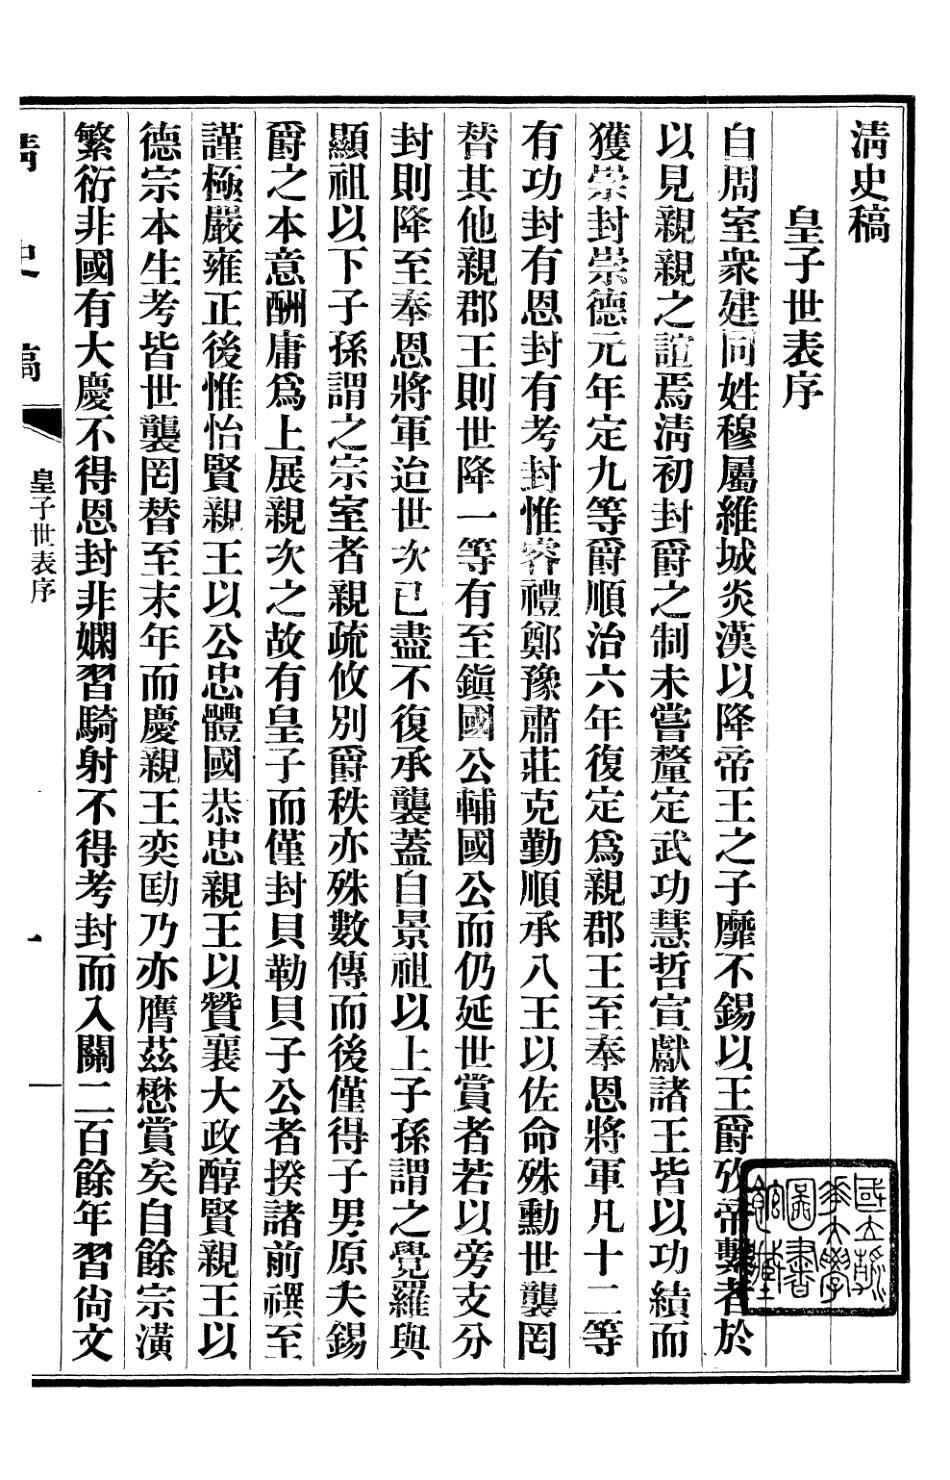 清史稿
皇子世表序
自周室衆建同姓穆屬維城炎漢以降帝王之子靡不錫以王爵攷帝繫者於
以見親親之誼焉清初封爵之制未嘗釐定武功慧哲宣獻諸王皆以功績而
獲崇封崇德元年定九等爵順治六年復定爲親郡王至奉恩將軍凡十二等
有功封有恩封有考封惟睿禮鄭豫肅莊克勤順承八王以佐命殊勳世襲罔
替其他親郡王則世降一等有至鎭國公輔國公而仍延世賞者若以旁支分
封則降至奉恩將軍迨世次已盡不復承襲蓋自景祖以上子孫謂之覺羅與
顯祖以下子孫謂之宗室者親疏攸別爵秩亦殊數傳而後僅得子男原夫錫
爵之本意酬庸爲上展親次之故有皇子而僅封貝勒貝子公者揆諸前禩至
謹極嚴雍正後惟怡賢親王以公忠體國恭忠親王以贊襄大政醇賢親王以
德宗本生考皆世襲罔替至末年而慶親王奕劻乃亦膺茲懋賞矣自餘宗潢
繁衍非國有大慶不得恩封非嫻習騎射不得考封而入關二百餘年習尙文
清史稿
皇子世表序
一
國立清華大學圖書館藏